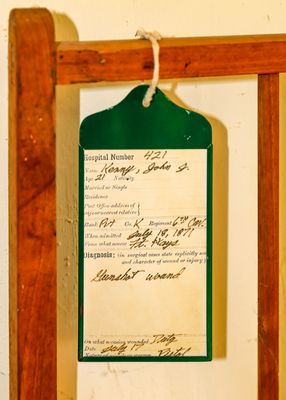 Hospital Number 421
Name Kenny, John J.
Age 21 Nativity
Married or Single
Residence
Post Office address of
nearest relative
Rank Pvt Co. K Regiment 6th Cav.
When admitted July 18, 1871
From what source Ft. Hays
Diagnosis: (in surgical cases state explicitly
and character of wound or injury)
Gunshot wound
On what occasion wounded Duty
Date July 17
Pistol